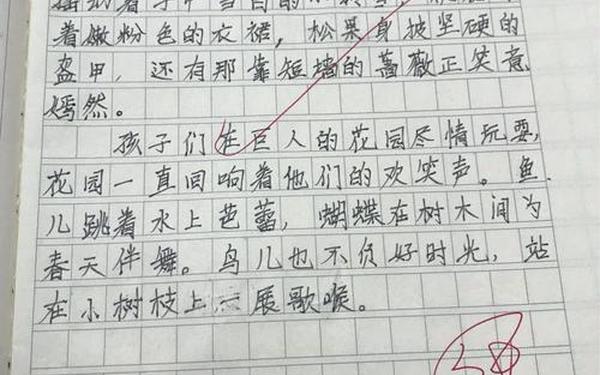 着嫩粉色的衣裙，松果身披坚硬的
盔甲，还有那靠短墙的蔷薇正笑意
嫣然。
孩子们在巨人的花园尽情玩耍，
花园一直回响着他们的欢笑声。鱼
儿跳着水上芭蕾，蝴蝶在树木间为
春天伴舞。鸟儿也不负好时光，站
在小树枝上一展歌喉。